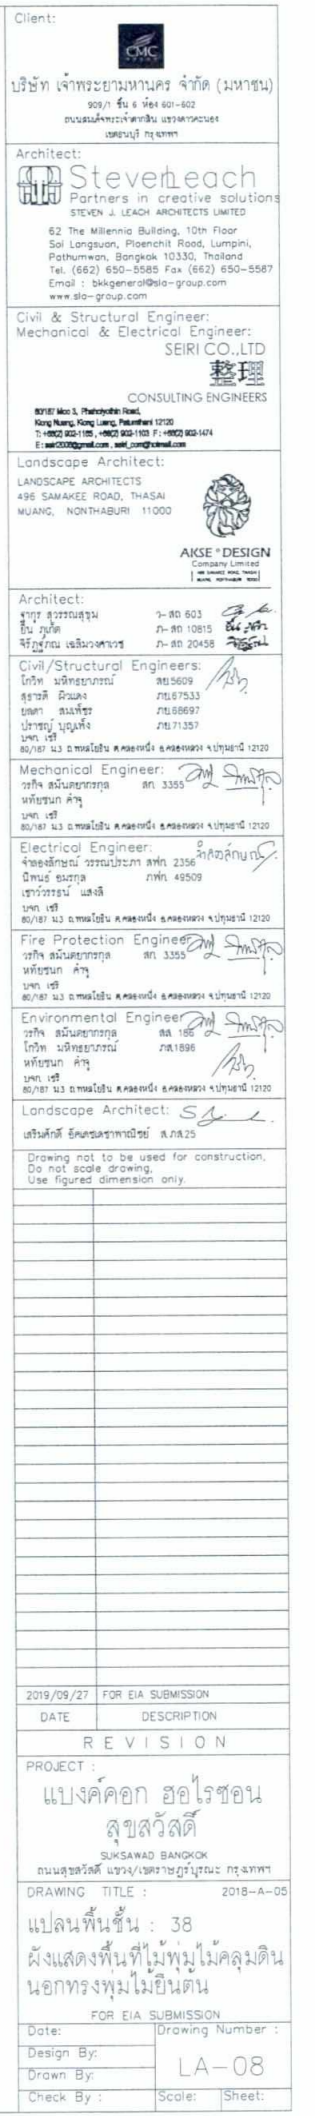 Client:
CMC
บริษัท เจ้าพระยามหานคร จำกัด (มหาชน)
909/1 ชั้น 6 ห้อง 601-602
ถนนสมเด็จพระเจ้าตากสิน แขวงดาวคะนอง
เขตธนบุรี กรุงเทพฯ
Architect:
StevenLeach
Partners in creative solutions
STEVEN J. LEACH ARCHITECTS LIMITED
62 The Millennia Building, 10th Floor
Soi Langsuan, Ploenchit Road, Lumpini,
Pathumwan, Bangkok 10330, Thailand
Tel. (662) 650-5585 Fax (662) 650-5587
Email : bkkgeneral@sla-group.com
www.sla-group.com
Civil & Structural Engineer:
Mechanical & Electrical Engineer:
SEIRI CO.,LTD
整理
CONSULTING ENGINEERS
80/187 Moo 3, Phaholyothin Road,
Klong Nueng, Klong Luang, Patumthani 12120
T: +66(2) 902-1185 , +66(2) 902-1103 F : +66(2) 902-1474
Landscape Architect:
LANDSCAPE ARCHITECTS
496 SAMAKEE ROAD, THASAI
MUANG, NONTHABURI 11000
AKSE DESIGN
Company Limited
Architect:
จากุร สุวรรณสุขุม ว-สถ 603
ยืน ภู่เกิด ภ-สถ 10815
ภ-สถ 20458
Civil/Structural Engineers:
โกวิท มหัทธยาภรณ์ สย5609
สุธารดี ผิวแดง ภย67533
ยลดา สมเพ็ชร ภย68697
ปราชญ์ บุญเพ็ง ภย71357
บจก เซรี
80/187 ม.3 ถ.พหลโยธิน ต.คลองหนึ่ง อ.คลองหลวง จ.ปทุมธานี 12120
Mechanical Engineer:
วรกิจ สมันตยากรกุล สก 3355
หทัยชนก คำจุ
บจก เซรี
80/187 ม.3 ถ.พหลโยธิน ต.คลองหนึ่ง อ.คลองหลวง จ.ปทุมธานี 12120
Electrical Engineer:
จำลองลักษณ์ วรรณประภา สฟก 2356
นิพนธ์ อมรกุล ภฟก 49509
เชาว์วรรธน์ แสงลี
บจก เซรี
80/187 ม.3 ถ.พหลโยธิน ต.คลองหนึ่ง อ.คลองหลวง จ.ปทุมธานี 12120
Fire Protection Engineer
วรกิจ สมันตยากรกุล สก 3355
หทัยชนก คำจุ
บจก เซรี
80/187 ม.3 ถ.พหลโยธิน ต.คลองหนึ่ง อ.คลองหลวง จ.ปทุมธานี 12120
Environmental Engineer
วรกิจ สมันตยากรกุล สส 186
โกวิท มหัทธยาภรณ์ ภส1896
หทัยชนก คำจุ
บจก เซรี
80/187 ม.3 ถ.พหลโยธิน ต.คลองหนึ่ง อ.คลองหลวง จ.ปทุมธานี 12120
Landscape Architect:
ส.ภส25
Drawing not to be used for construction,
Do not scale drawing,
Use figured dimension only.
2019/09/27 FOR EIA SUBMISSION
DATE DESCRIPTION
REVISION
PROJECT :
แบงค์คอก ฮอไรซอน
สุขสวัสดิ์
SUKSAWAD BANGKOK
ถนนสุขสวัสดิ์ แขวง/เขตราษฎร์บูรณะ กรุงเทพฯ
DRAWING TITLE : 2018-A-05
แปลนพื้นชั้น : 38
ผังแสดงพื้นที่ไม้พุ่มไม้คลุมดิน
นอกทรงพุ่มไม้ยืนต้น
FOR EIA SUBMISSION
Date: Drawing Number :
Design By:
Drawn By: LA-08
Check By : Scale: Sheet: